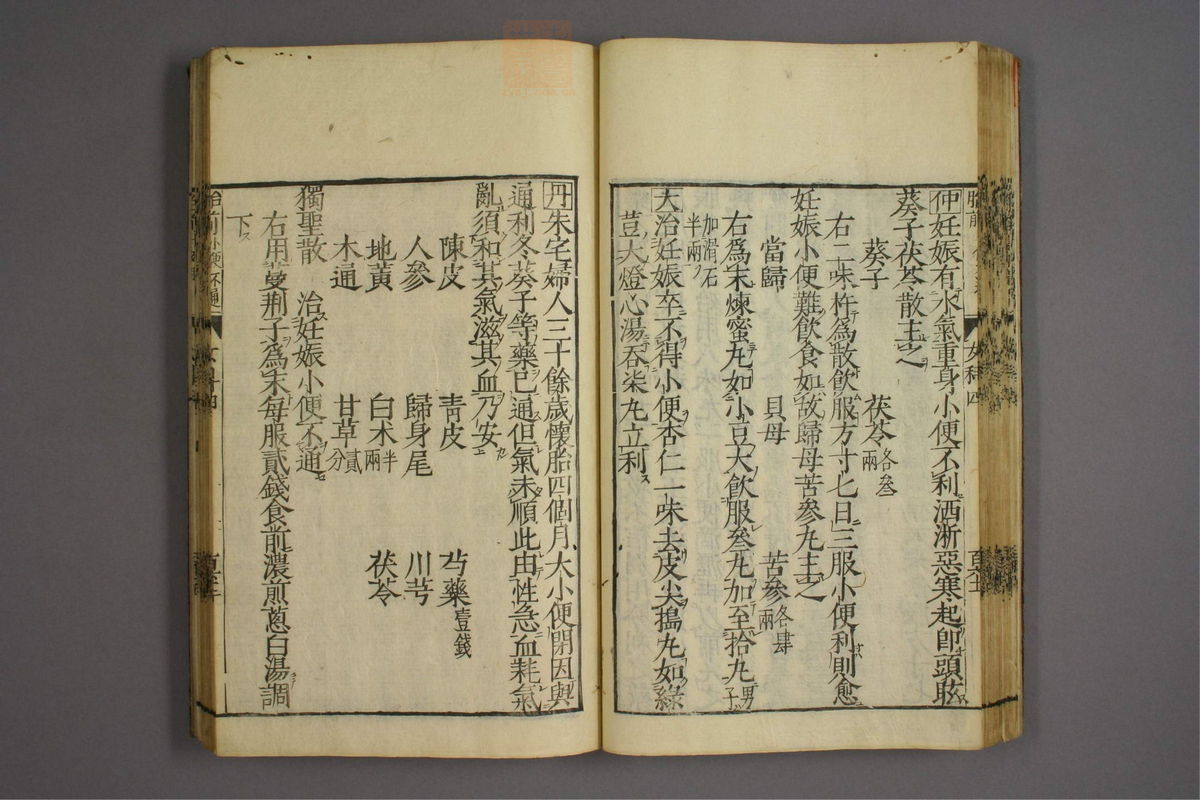 仲妊娠有水氣重身小便不利洒淅惡寒起卽頭眩
葵子茯苓散主之
葵子　茯苓各叄兩
右二味杵為散飲服方寸匕日三服小便利則愈
妊娠小便難飲食如故歸母苦參丸主之
當歸　貝母　苦參各肆兩
右為末煉蜜丸如小豆大飲服叄丸加至拾丸男子
加滑石半兩
大治妊娠卒不得小便杏仁一味去皮尖搗丸如綠
荳大燈心湯吞柒丸立利
丹朱宅婦人三十餘歲懷胎四個月大小便閉因與
通利冬葵子等藥已通但氣未順此由性急血耗氣
亂須和其氣滋其血乃安
陳皮　青皮　芍藥壹錢
人參　歸身尾　川芎
地黃　白朮半兩　茯苓
木通　甘草貳分
獨聖散　治妊娠小便不通
右用蔓荆子為末每服貳錢食前濃煎蔥白湯調
下
胎前　小便不通　女科四